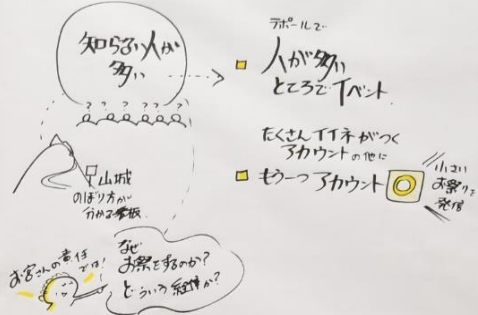 知らない人が
多い
? ? ? ? ? ?
山城
のぼり方が
分かる看板
お宮さんの責任
では!
なぜ
お祭をするのか?
どういう経緯か?
ラポールで
人が多い
ところでイベント
たくさんイイネがつく
アカウントの他に
もう一つアカウント
小さい
お祭りを
発信